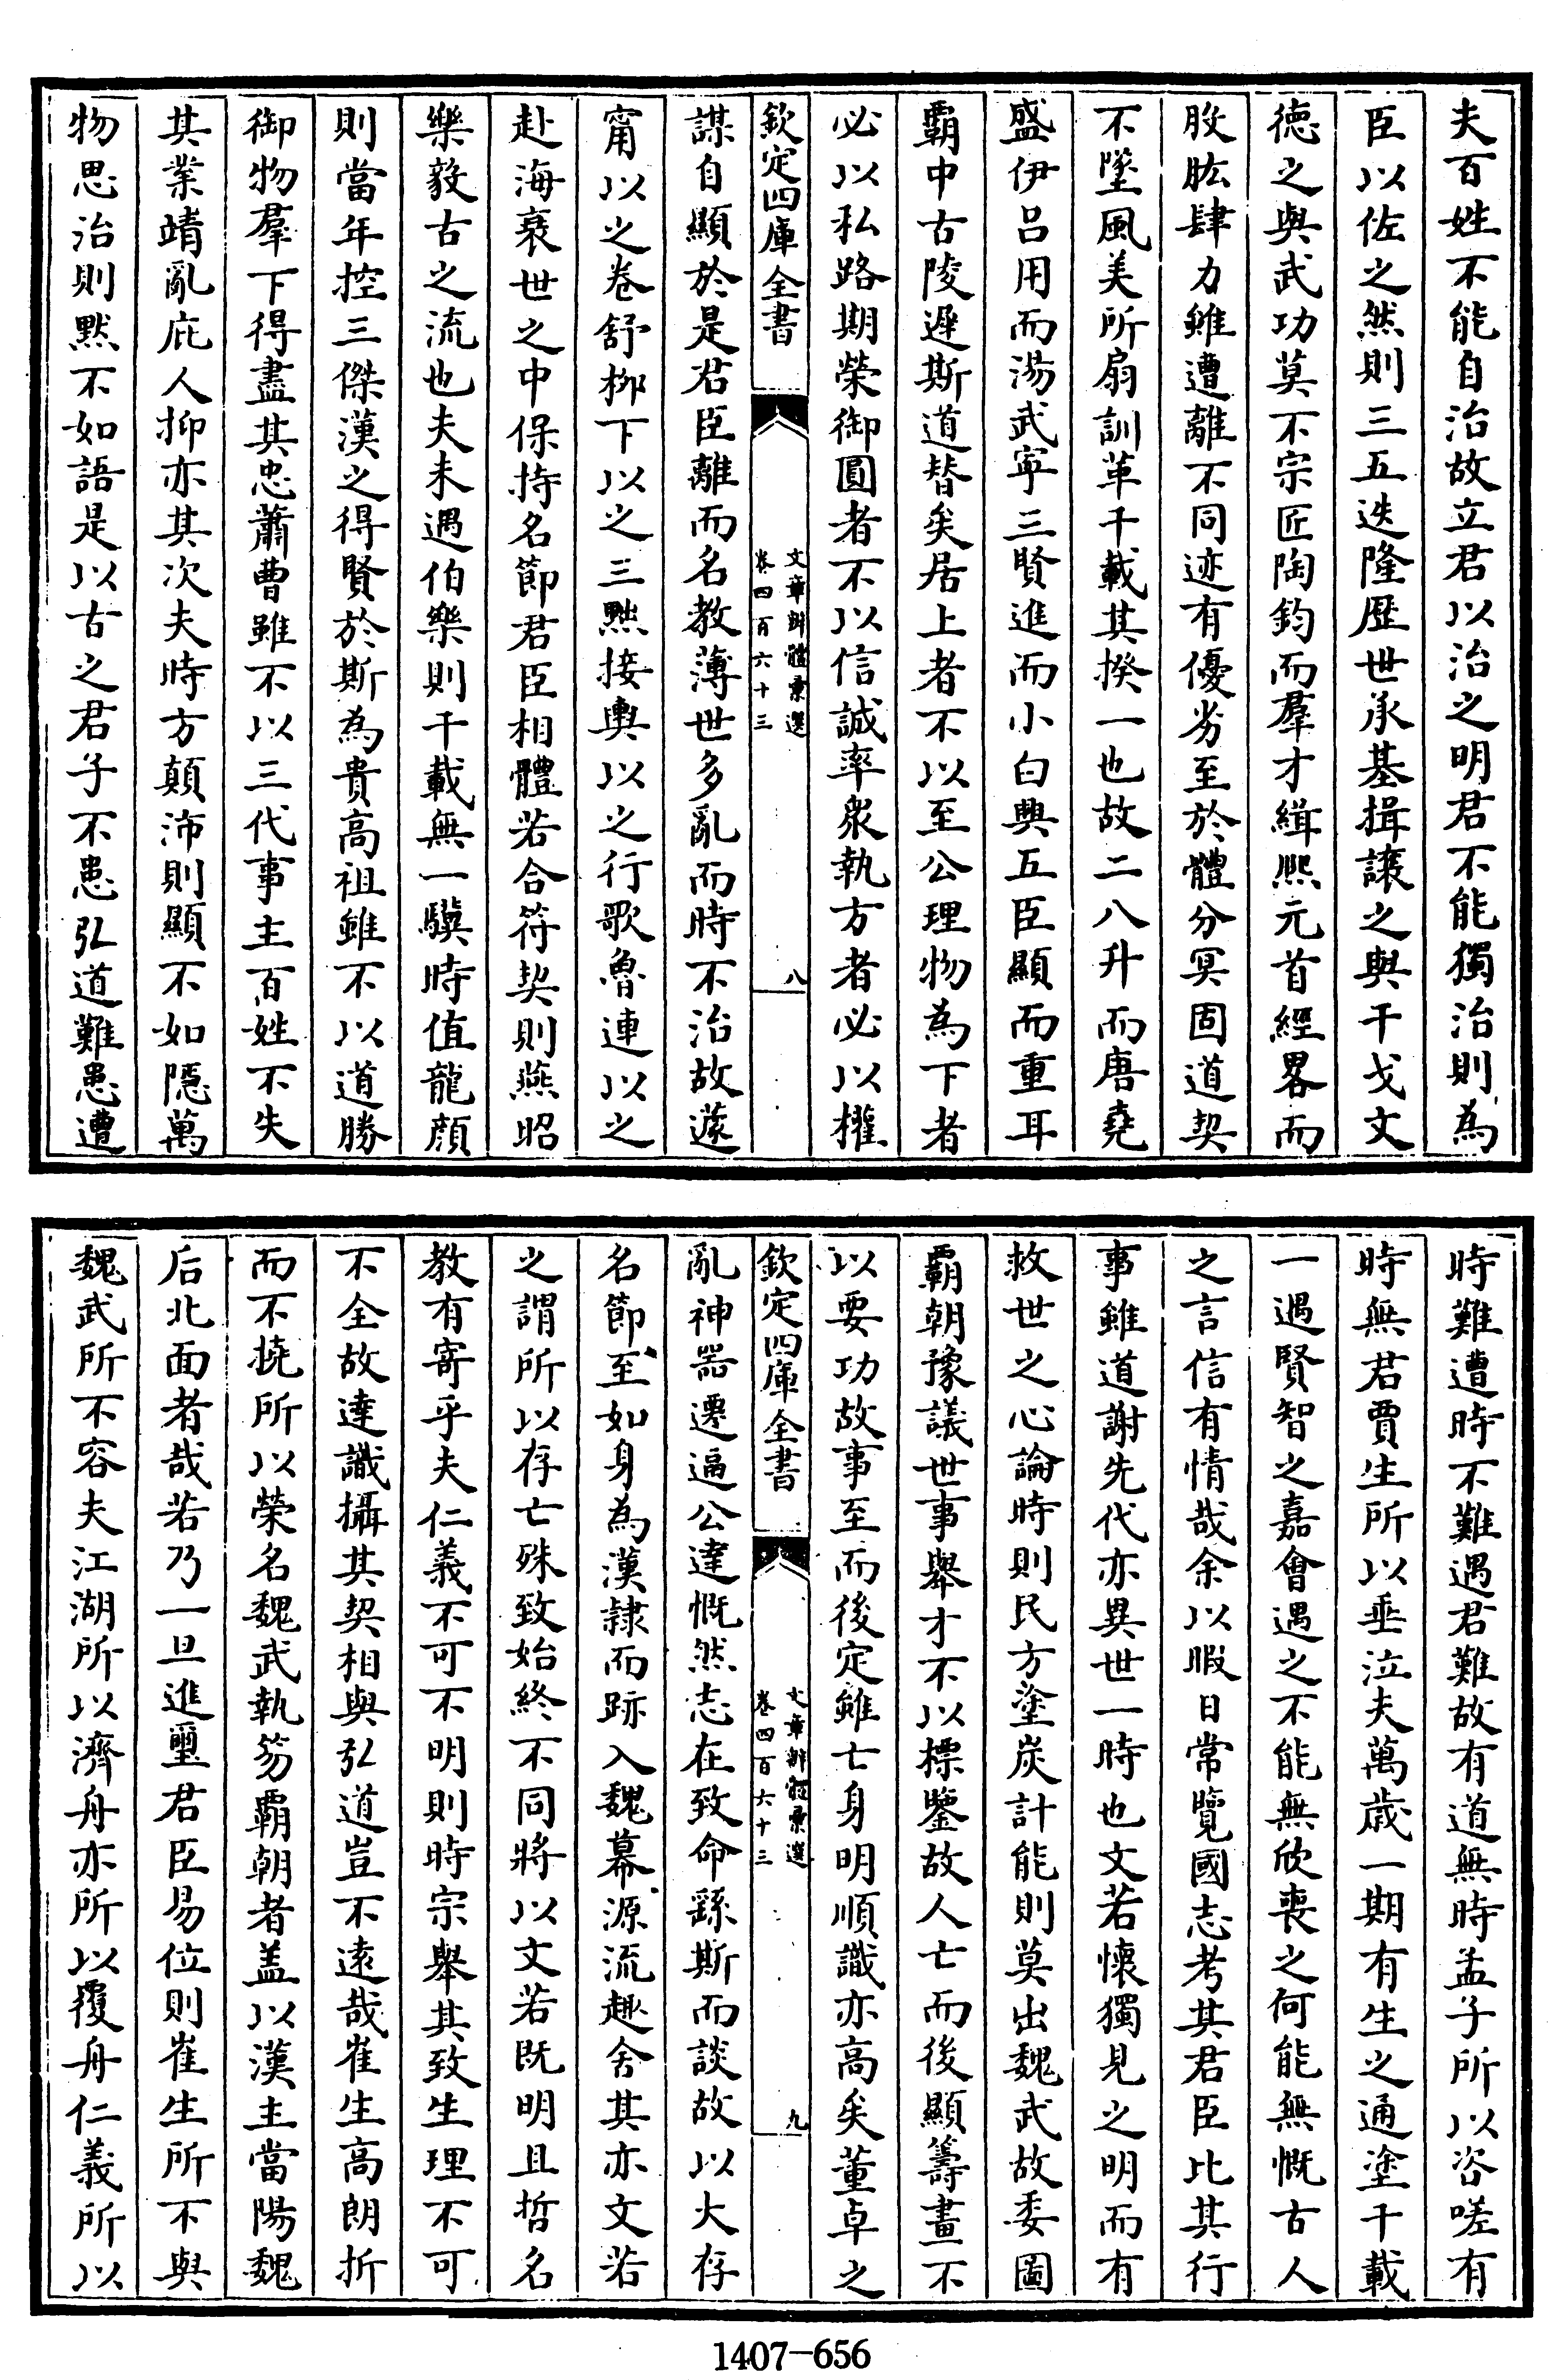 夫百姓不能自治故立君以治之明君不能獨治則為
臣以佐之然則三五迭隆歷世承基揖讓之與干戈文
德之與武功莫不宗匠陶鈞而羣才緝熙元首經畧而
股肱肆力雖遭離不同迹有優劣至於體分冥固道契
不墜風美所扇訓革千載其揆一也故二八升而唐堯
盛伊吕用而湯武寜三賢進而小白興五臣顯而重耳
霸中古陵遲斯道替矣居上者不以至公理物為下者
必以私路期榮御圓者不以信誠率衆執方者必以權
欽定四庫全書
文章辨體彚選
卷四百六十三
八
謀自顯於是君臣離而名教薄世多亂而時不治故蘧
甯以之卷舒栁下以之三黜接輿以之行歌魯連以之
赴海衰世之中保持名節君臣相體若合符契則燕昭
樂毅古之流也夫未遇伯樂則千載無一驥時值龍顔
則當年控三傑漢之得賢於斯為貴高祖雖不以道勝
御物羣下得盡其忠蕭曹雖不以三代事主百姓不失
其業靖亂庇人抑亦其次夫時方顛沛則顯不如隱萬
物思治則黙不如語是以古之君子不患弘道難患遭
時難遭時不難遇君難故有道無時孟子所以咨嗟有
時無君賈生所以垂泣夫萬歲一期有生之通塗千載
一遇賢智之嘉會遇之不能無欣喪之何能無慨古人
之言信有情哉余以暇日常覽國志考其君臣比其行
事雖道謝先代亦異世一時也文若懷獨見之明而有
救世之心論時則民方塗炭計能則莫出魏武故委圖
霸朝豫議世事舉才不以標鑒故人亡而後顯籌畫不
以要功故事至而後定雖亡身明順識亦高矣董卓之
欽定四庫全書
文章辨體彚選
卷四百六十三
九
亂神器遷逼公達慨然志在致命繇斯而談故以大存
名節至如身為漢隸而跡入魏幕源流趣舍其亦文若
之謂所以存亡殊致始終不同將以文若既明且哲名
教有寄乎夫仁義不可不明則時宗舉其致生理不可
不全故達識攝其契相與弘道豈不遠哉崔生高朗折
而不撓所以榮名魏武執笏霸朝者盖以漢主當陽魏
后北面者哉若乃一旦進璽君臣易位則崔生所不與
魏武所不容夫江湖所以濟舟亦所以覆舟仁義所以
1407-656